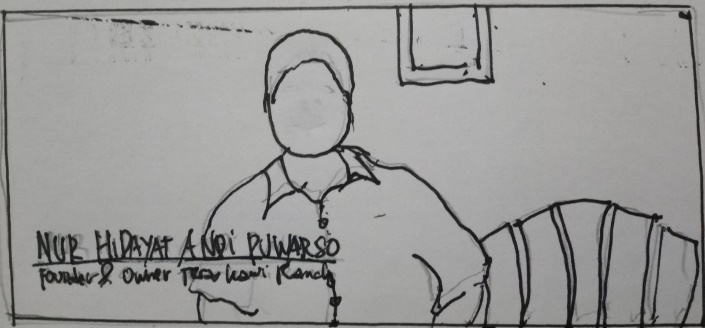 NUR HiDAYAT ANDi PUWARSO
Founder & Owner